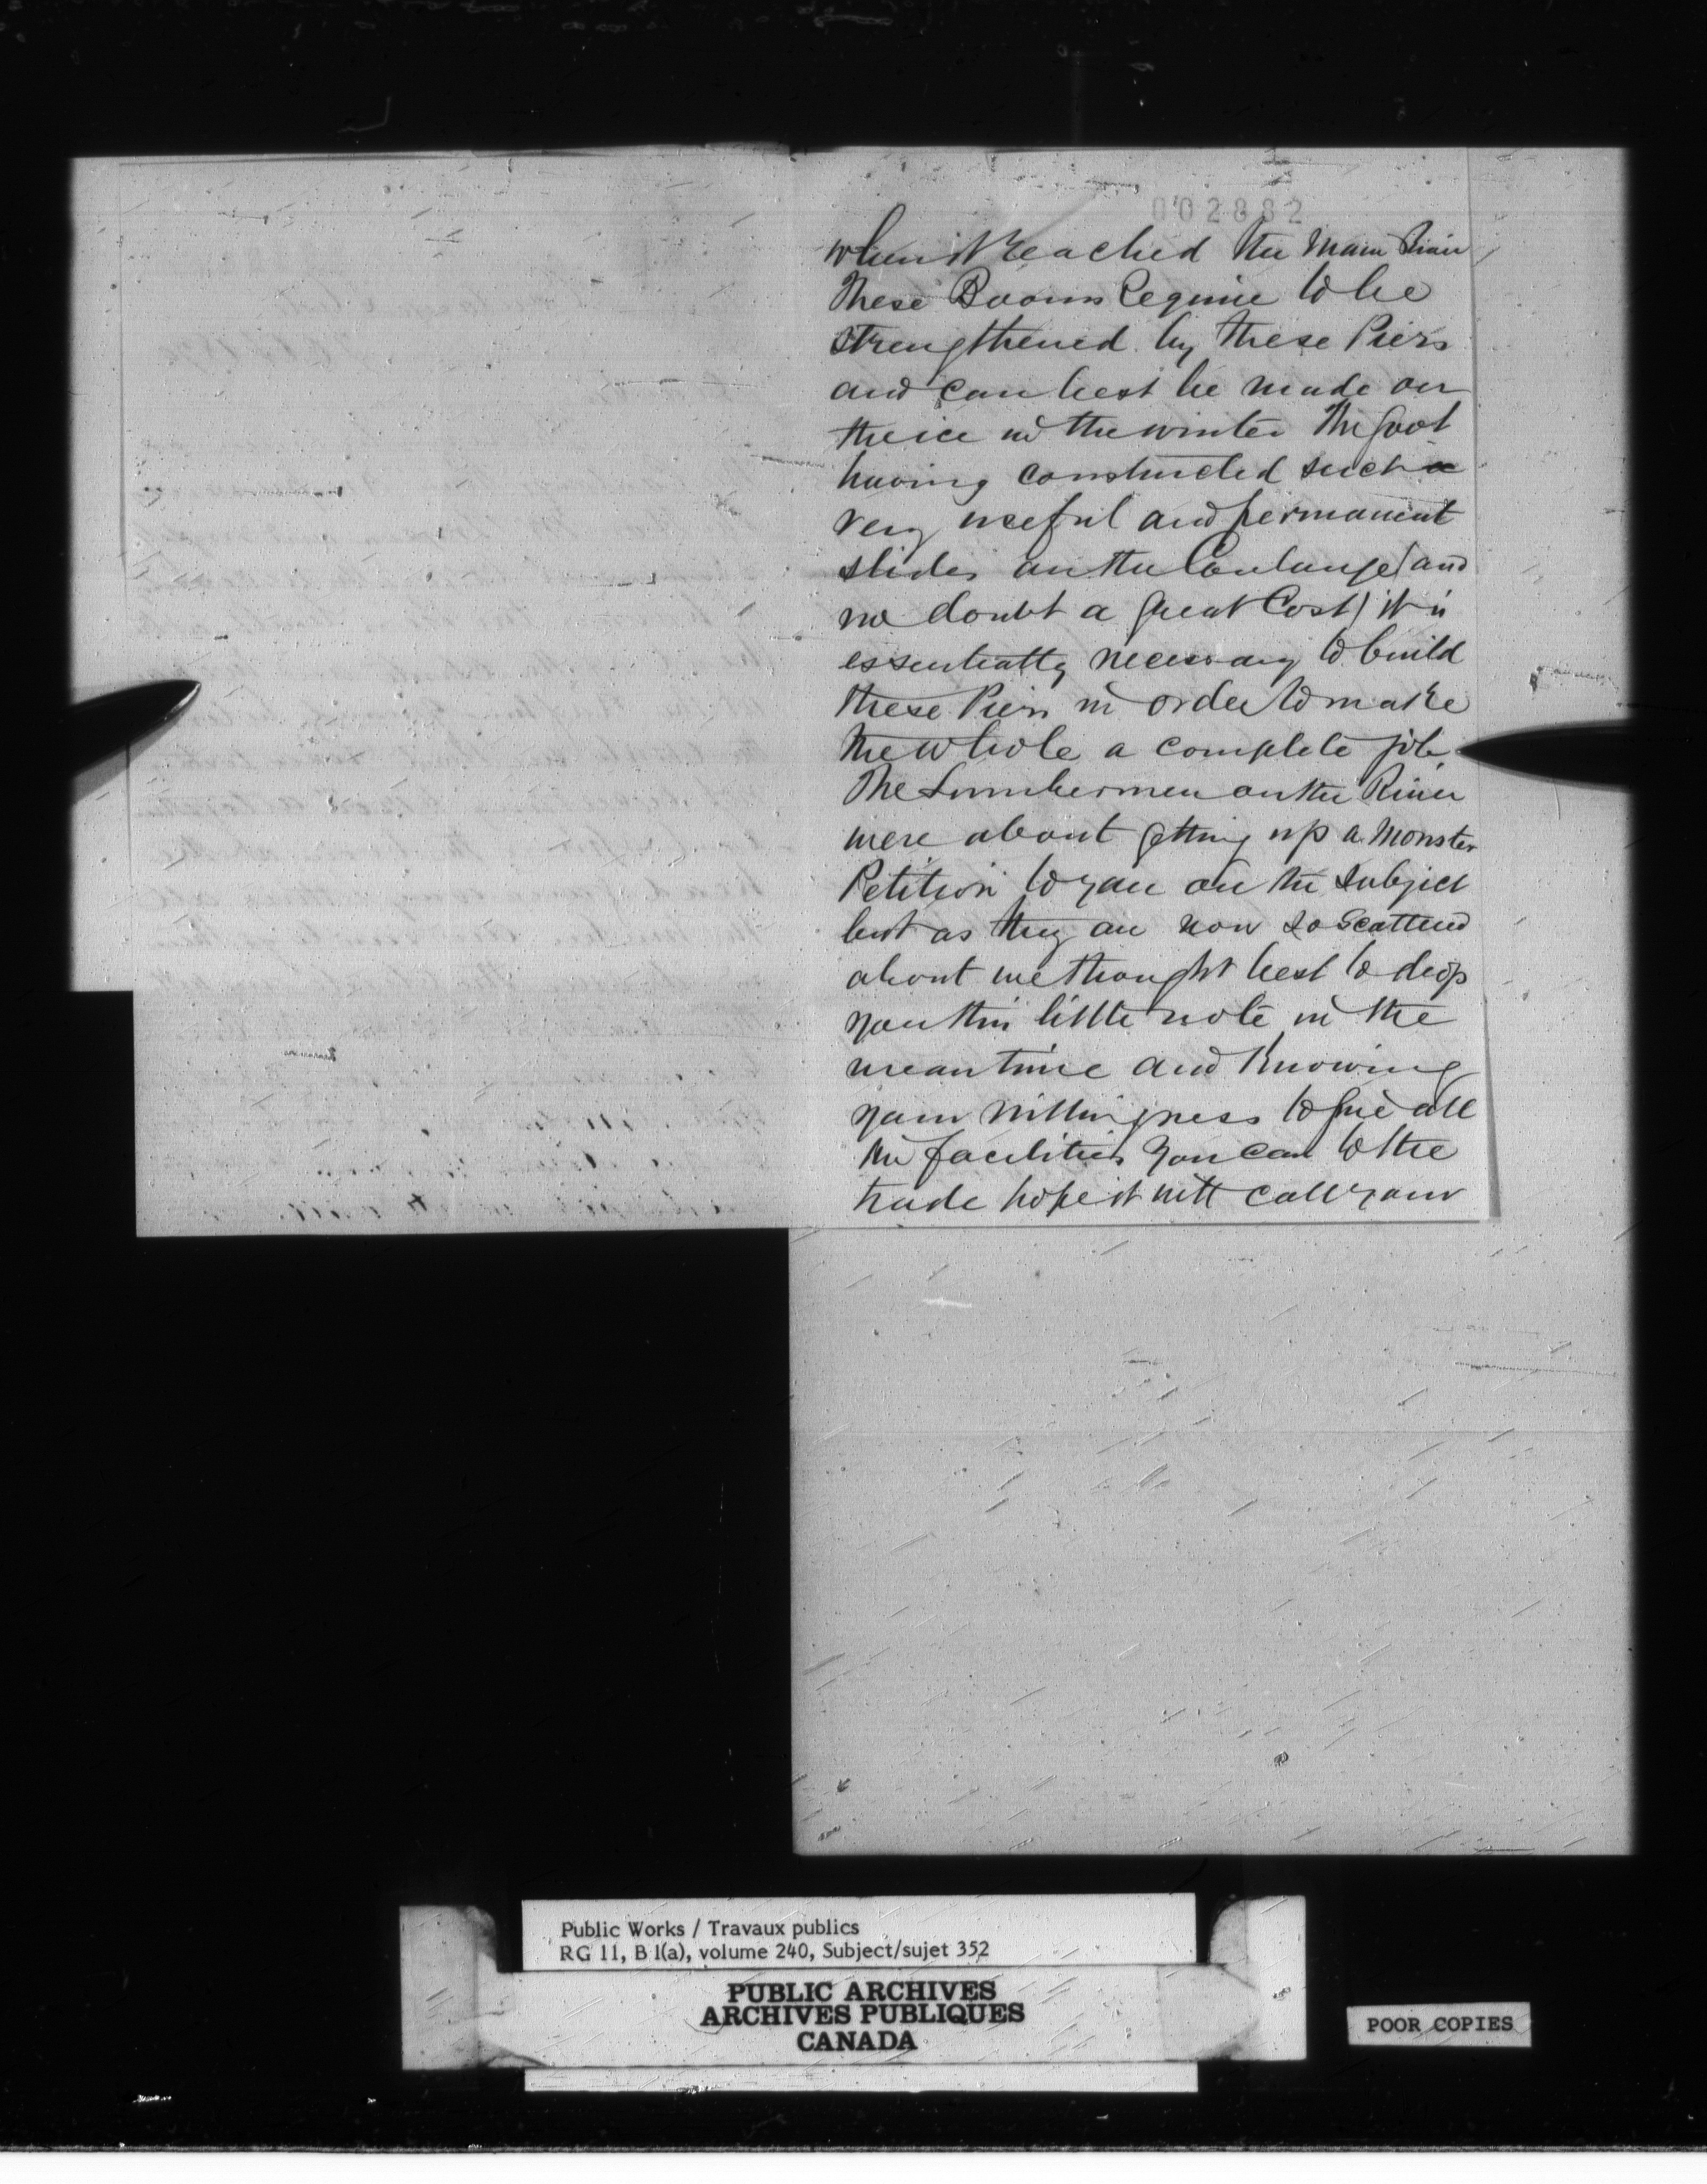 002882
when it Reached the Main River
These Booms Require to be
strengthened by these Piers
and can best be made on
the ice in the winter The Govt
having constructed such a
very useful and permanent
slides on the Coulonge (and
no doubt a great Cost) it is
essentially necessary to build
these Piers in order to make
the whole a complete job.
The Lumbermen on the River
were about getting up a Monster
Petition to you on the subject
but as they are now so Scattered
about we thought best to drop
you this little note in the
meantime and Knowing
your willingness to give all
the facilities you can to the
trade hope it will call your
Public Works / Travaux publics
RG 11, B 1(a), volume 240, Subject/sujet 352
PUBLIC ARCHIVES
ARCHIVES PUBLIQUES
CANADA
POOR COPIES